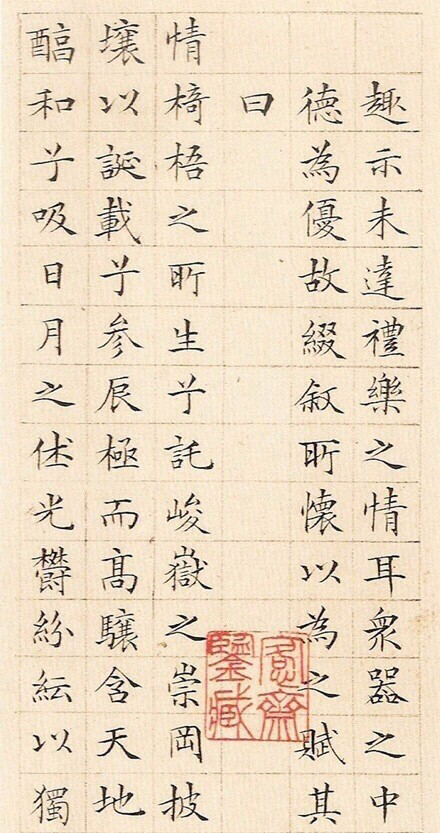 趣示未達禮樂之情耳衆器之中
德為優故綴叙所懷以為之賦其
曰
情椅梧之所生兮託峻嶽之崇岡披
壤以誕載兮参辰極而髙驤含天地
醕和兮吸日月之休光欎紛紜以獨
愙齋
鑒藏